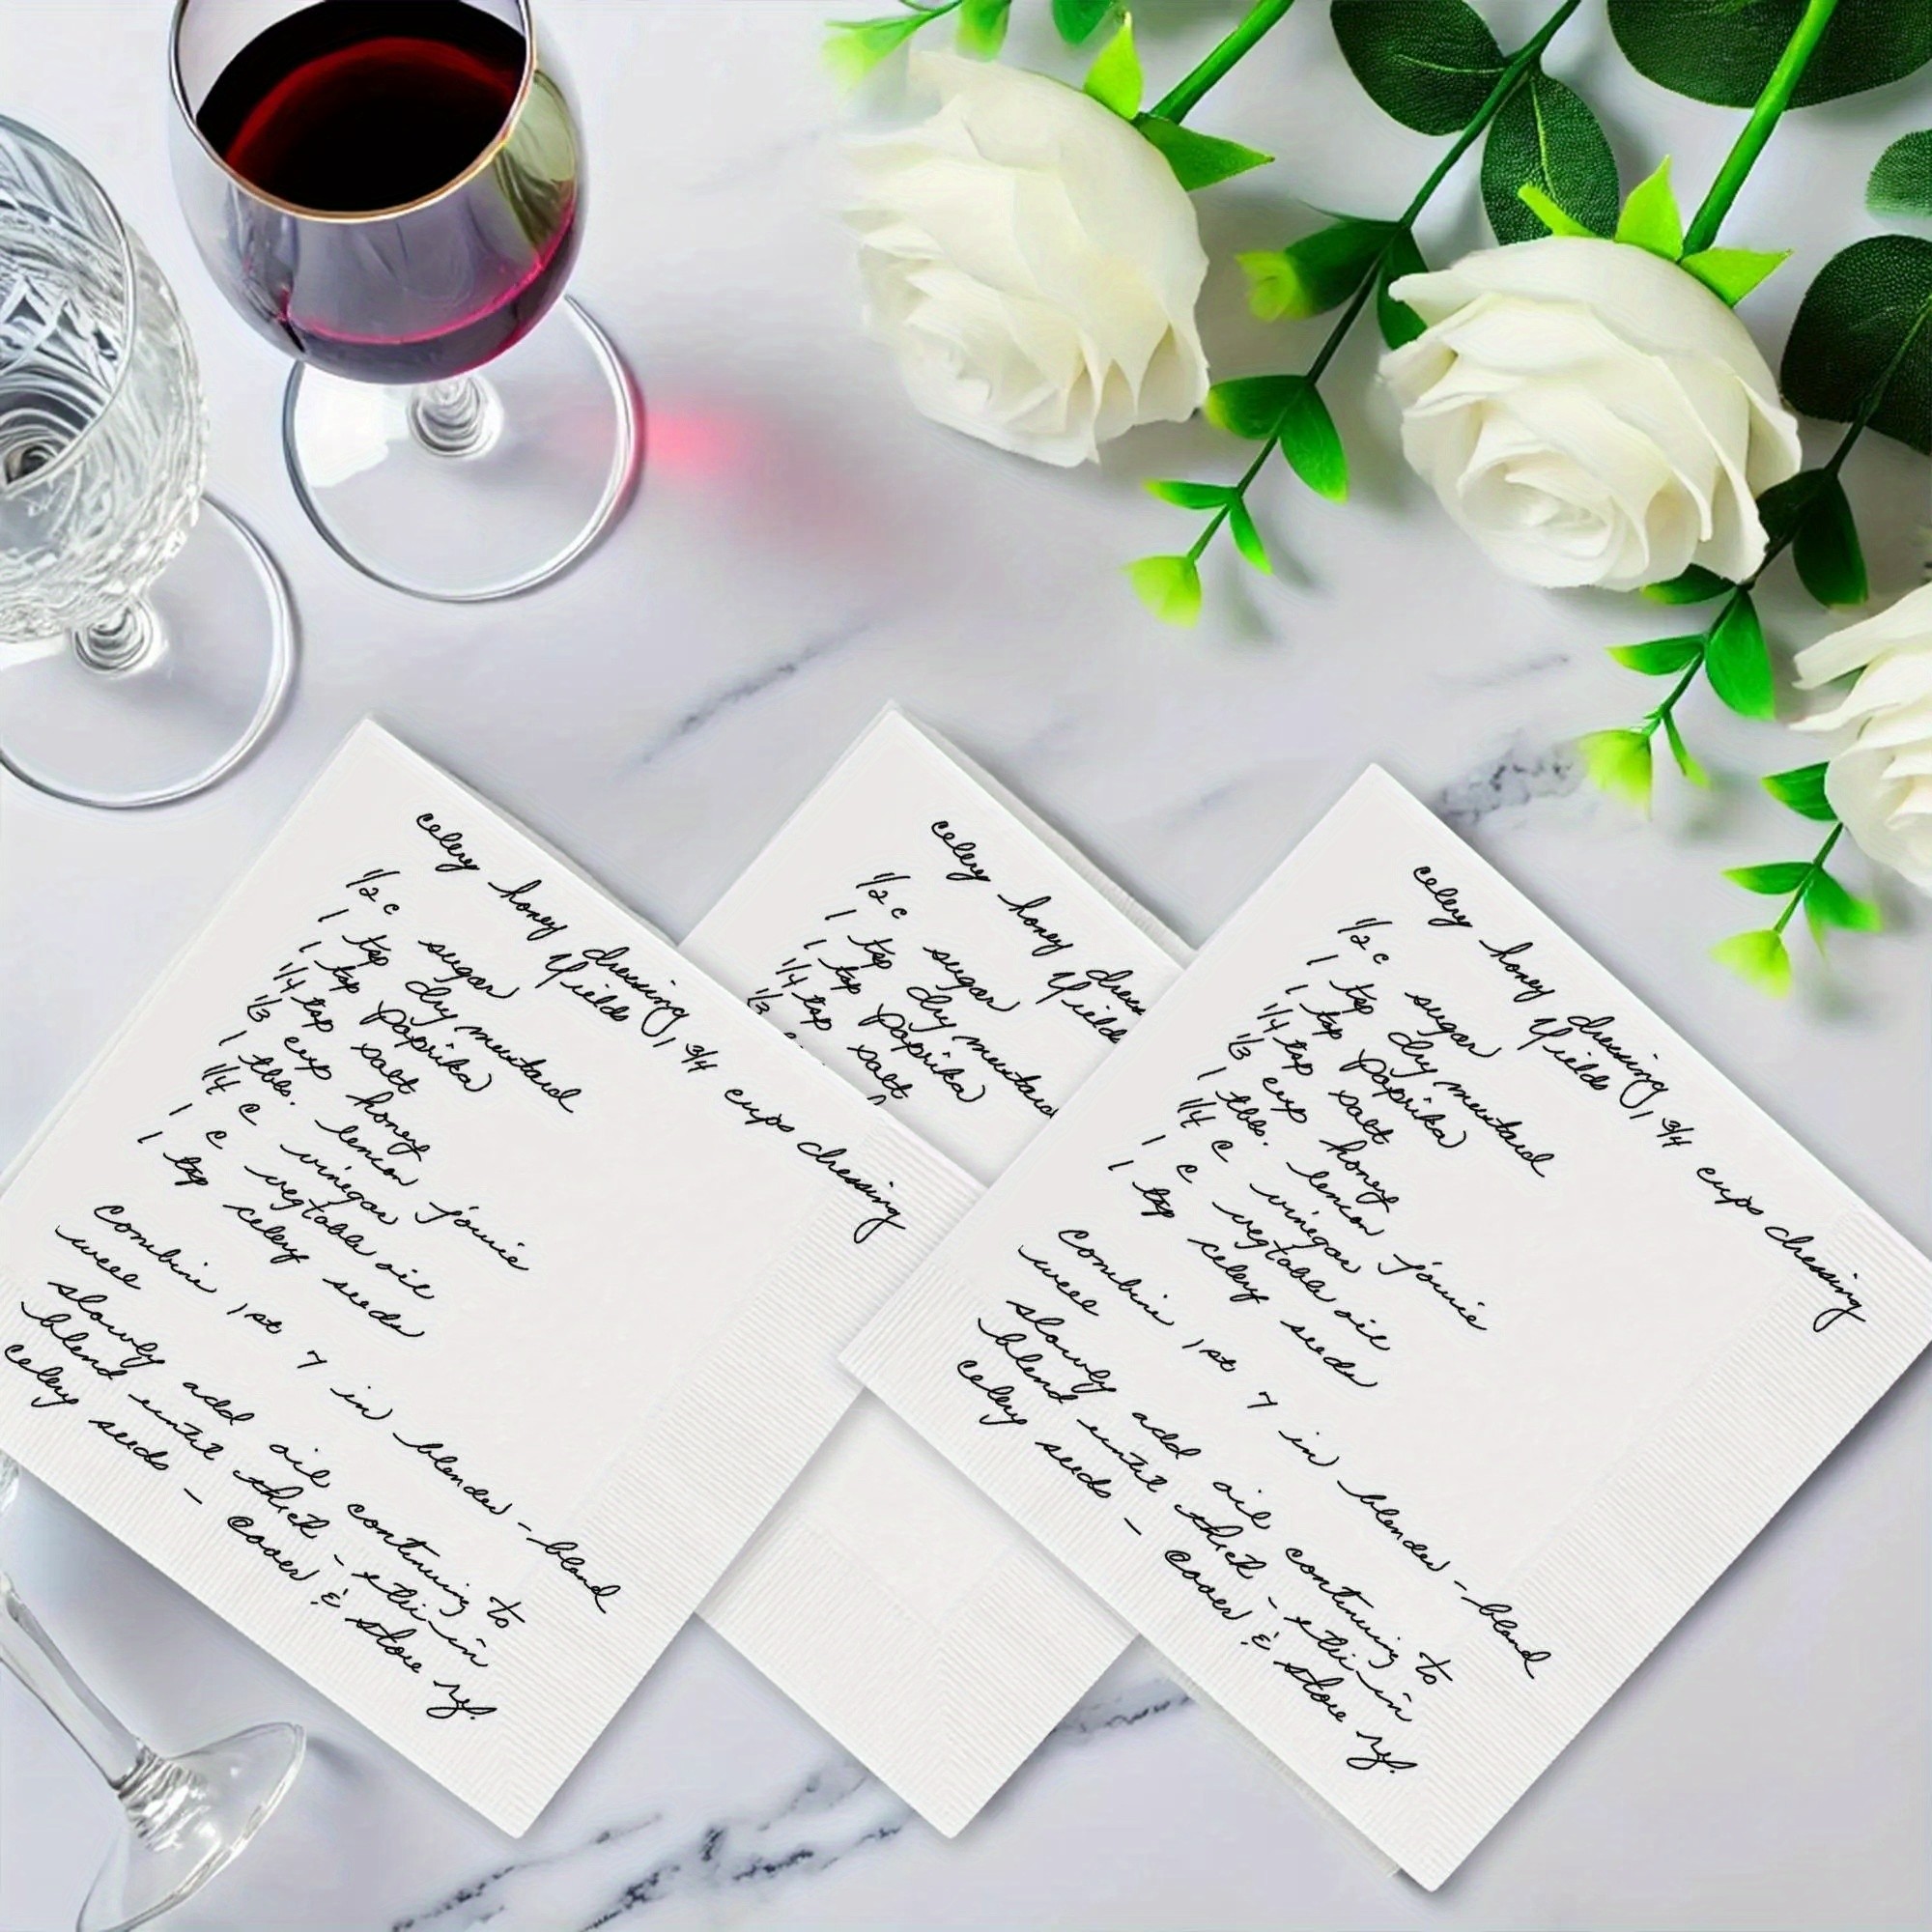 celery honey dressing
Yields 1 3/4 cups dressing
1/2 c sugar
1 tsp dry mustard
1 tsp paprika
1/4 tsp salt
1/3 cup honey
1 tbls. lemon jouie
1/4 c vinegar
1 c vegtable oil
1 tsp celery seeds
Combine 1st 7 in blender - blend
well
slowly add oil continuing to
blend until thick - stir in
celery seeds - cover & store ref.
celery honey dress
Yield
1/2 c sugar
1 tsp dry mustard
1 tsp paprika
1/4 tsp salt
1/3
celery honey dressing
Yields 1 3/4 cups dressing
1/2 c sugar
1 tsp dry mustard
1 tsp paprika
1/4 tsp salt
1/3 cup honey
1 tbls. lemon jouie
1/4 c vinegar
1 c vegtable oil
1 tsp celery seeds
Combine 1st 7 in blender - blend
well
slowly add oil continuing to
blend until thick - stir in
celery seeds - cover & store ref.